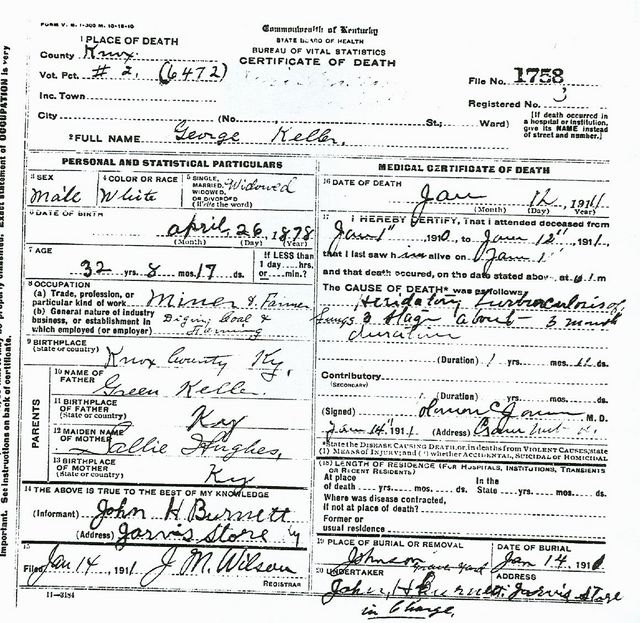 FORM V. S. 1-300 M. 10-18-10
Commonwealth of Kentucky
STATE BOARD OF HEALTH
BUREAU OF VITAL STATISTICS
CERTIFICATE OF DEATH
1 PLACE OF DEATH
County Knox
Vot. Pct. # 2. (6472)
File No. 1758
Inc. Town
Registered No. 3
City (No. St.; Ward)
[If death occurred in a hospital or institution, give its NAME instead of street and number.]
2 FULL NAME George Keller.
PERSONAL AND STATISTICAL PARTICULARS
3 SEX Male
4 COLOR OR RACE White
5 SINGLE, MARRIED, WIDOWED, OR DIVORCED (Write the word) Widowed
6 DATE OF BIRTH April, 26, 1878
(Month) (Day) (Year)
7 AGE 32 yrs. 8 mos. 17 ds.
If LESS than 1 day....hrs. or....min.?
8 OCCUPATION
(a) Trade, profession, or particular kind of work Miner & Farmer
(b) General nature of industry business, or establishment in which employed (or employer) Diging Coal & Farming
9 BIRTHPLACE (State or country) Knox County Ky,
PARENTS
10 NAME OF FATHER Green Keller.
11 BIRTHPLACE OF FATHER (State or country) Ky
12 MAIDEN NAME OF MOTHER Lallie Hughes,
13 BIRTHPLACE OF MOTHER (State or country) Ky
14 THE ABOVE IS TRUE TO THE BEST OF MY KNOWLEDGE
(Informant) John H Burnett
(Address) Jarvis Store Ky
15
Filed Jan 14, 1911 J. M. Wilson
REGISTRAR
11—3184
MEDICAL CERTIFICATE OF DEATH
16 DATE OF DEATH
Jan 12, 1911
(Month) (Day) (Year)
17 I HEREBY CERTIFY, That I attended deceased from
Jan 1", 1910, to Jan 12", 1911,
that I last saw him alive on Jan 1"
and that death occured, on the date stated above, at m
The CAUSE OF DEATH* was as follows:
Heridatory turbarculosis of
lungs 3 stage about 3 month
duration
(Duration) 1 yrs. mos. ds.
Contributory
(SECONDARY)
(Duration) yrs. mos. ds.
(Signed) M. D.
Jan 14", 1911 (Address)
*State the DISEASE CAUSING DEATH, or, in deaths from VIOLENT CAUSES, state (1) MEANS OF INJURY; and (2) whether ACCIDENTAL, SUICIDAL OR HOMICIDAL
(18) LENGTH OF RESIDENCE (FOR HOSPITALS, INSTITUTIONS, TRANSIENTS OR RECENT RESIDENTS)
At place of death yrs. mos. ds. In the State yrs. mos. ds.
Where was disease contracted, if not at place of death?
Former or usual residence
19 PLACE OF BURIAL OR REMOVAL Johnson Grave Yard
DATE OF BURIAL Jan 14, 1911
20 UNDERTAKER John, H Burnett
ADDRESS Jarvis Store
in Charge,
Exact statement of OCCUPATION is very
Important. See instructions on back of certificate.